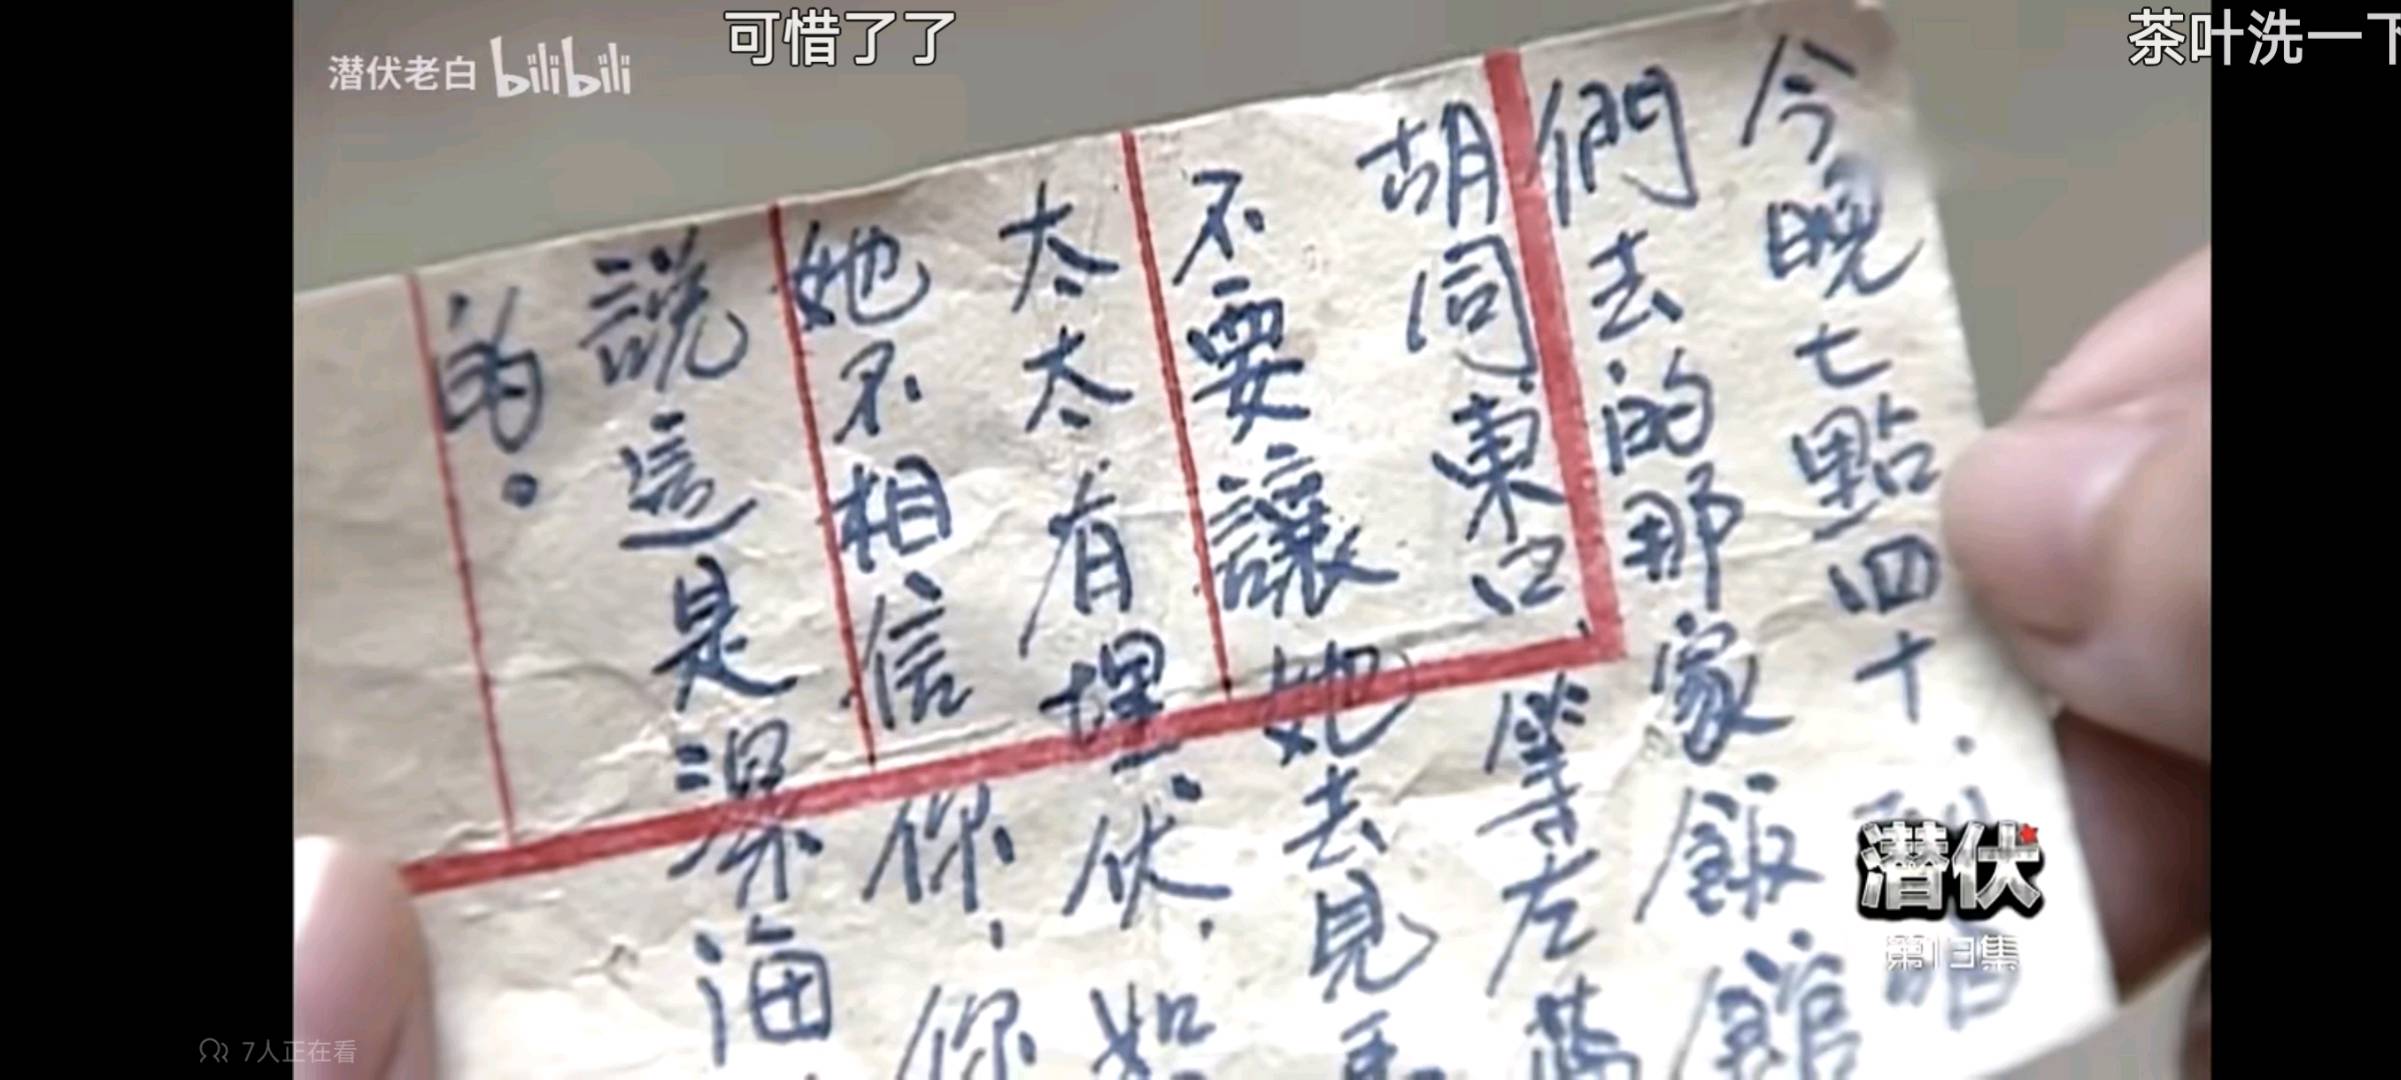 潜伏老白 bilibili
可惜了了
茶叶洗一下
今晚七點四十.
們去的那家飯館
胡同東口,等左藍
不要讓她去見馬
太太有埋伏.如
她不相信你.你
說這是深海
的.
潜伏
第13集
7人正在看